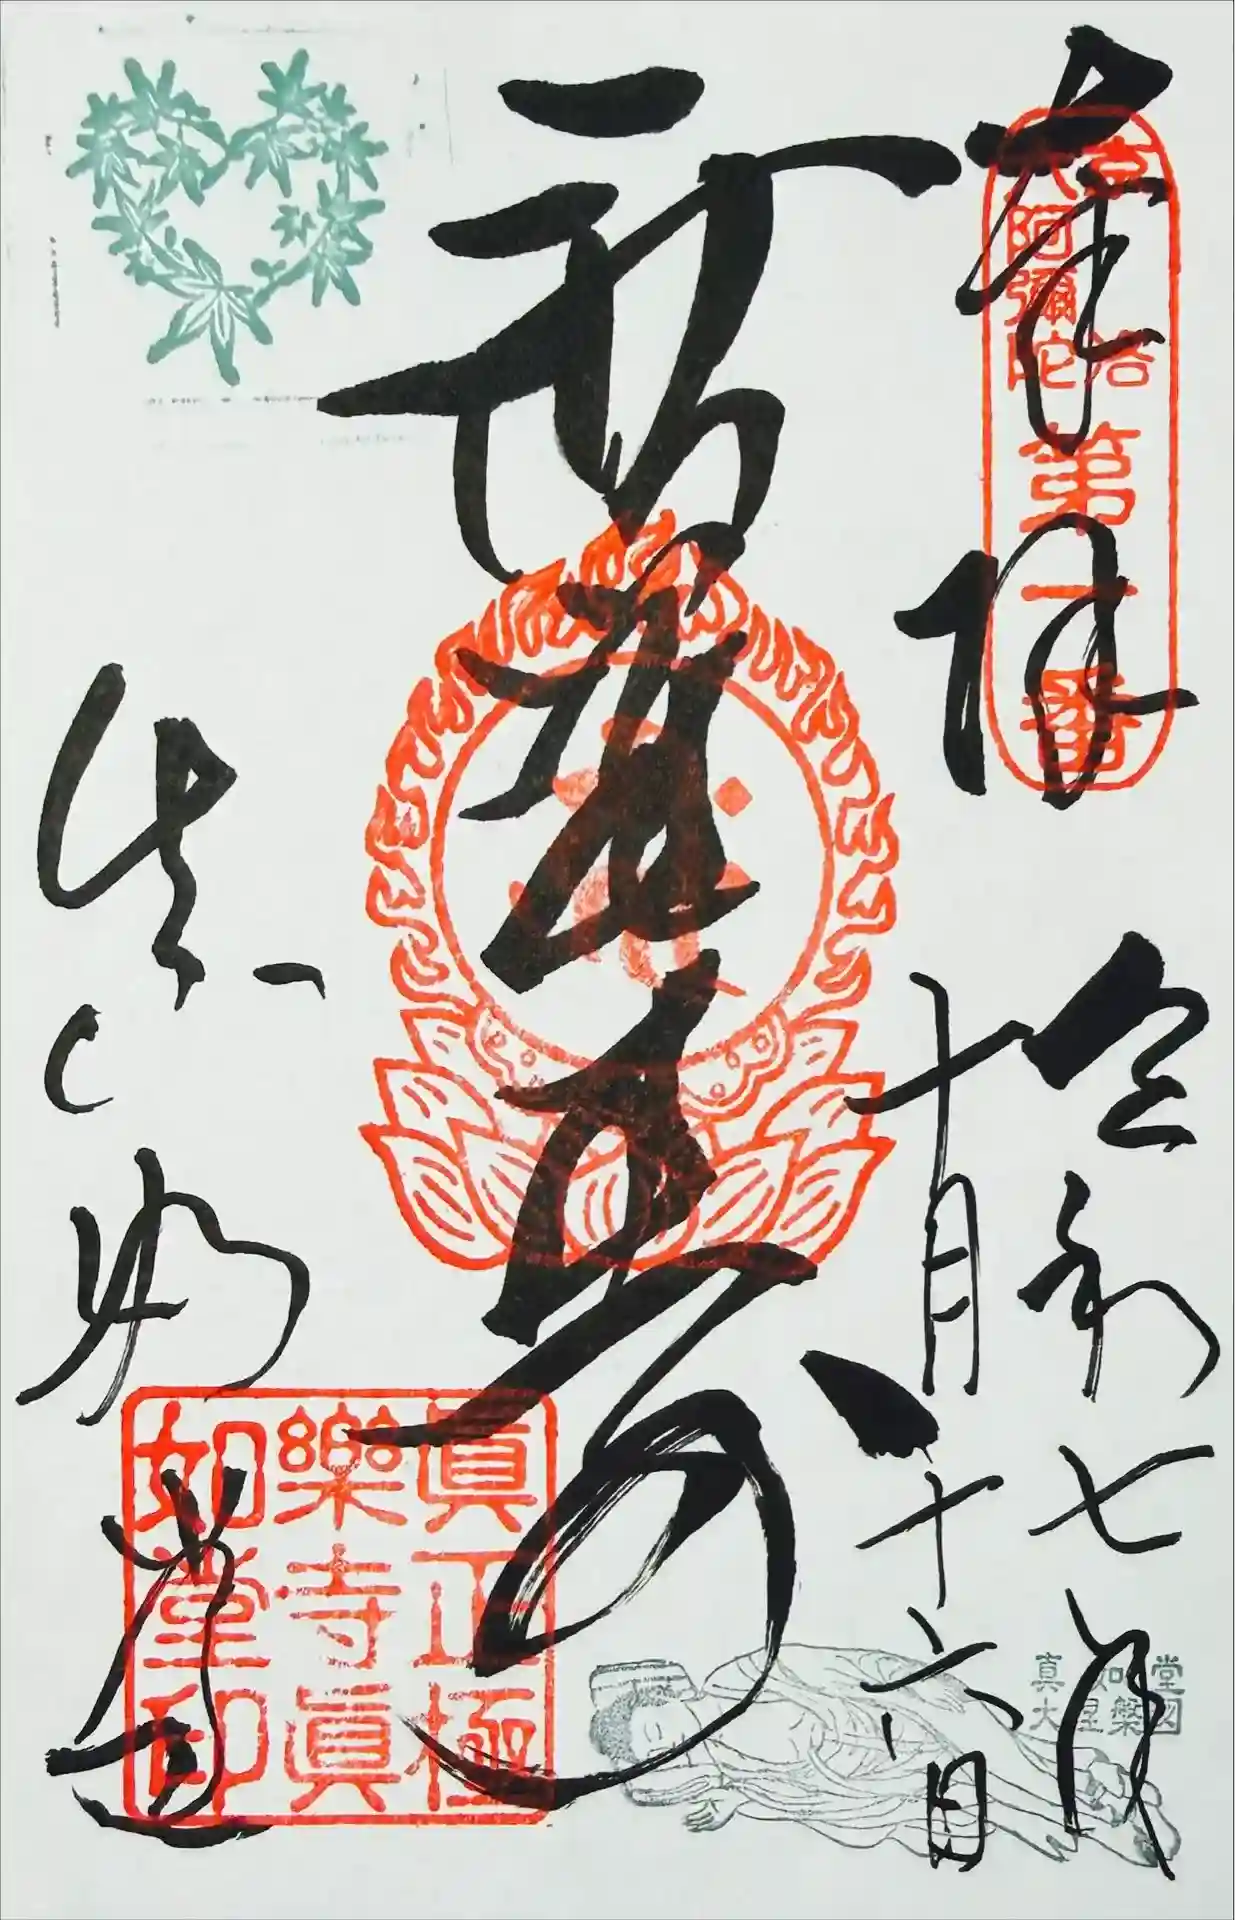 奉拝
京洛
六阿彌陀
第一番
令和七年
十月十六日
真如堂
眞正極
樂寺眞
如堂印
真如堂
大涅槃図